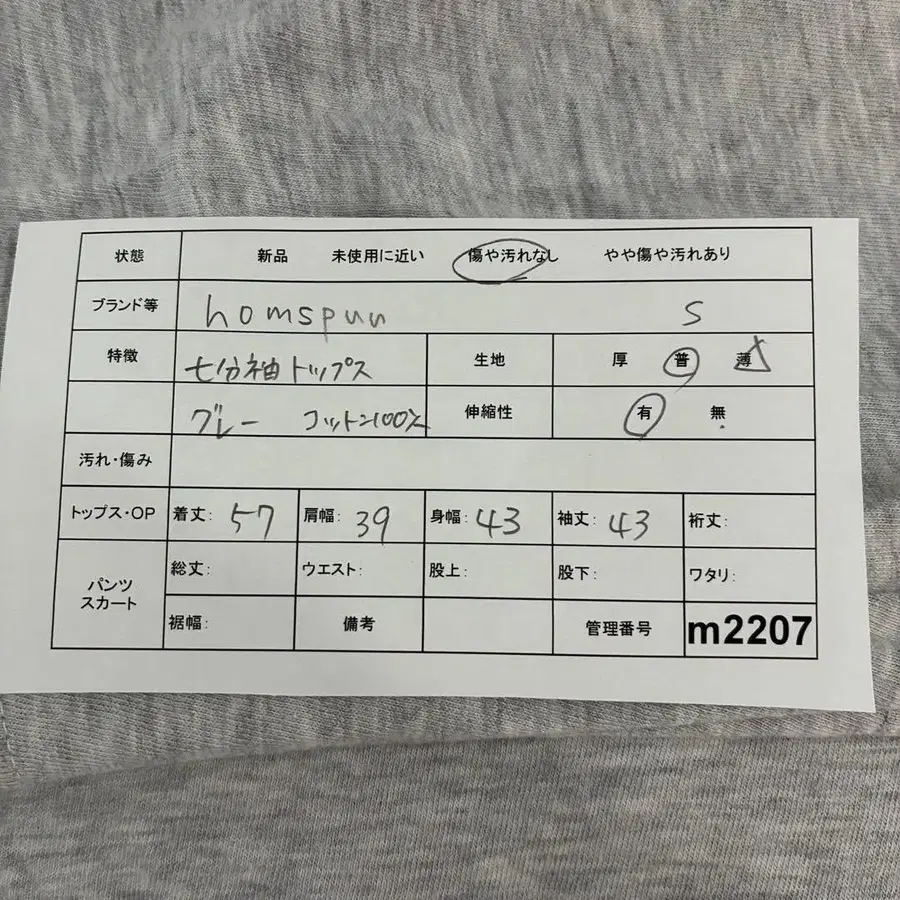 状態 新品 未使用に近い 傷や汚れなし やや傷や汚れあり
ブランド等 homspun S
特徴 七分袖トップス 生地 厚 普 薄
グレー コットン100% 伸縮性 有 無
汚れ・傷み
トップス・OP 着丈: 57 肩幅: 39 身幅: 43 袖丈: 43 裄丈:
パンツ スカート 総丈: ウエスト: 股上: 股下: ワタリ:
裾幅: 備考 管理番号 m2207